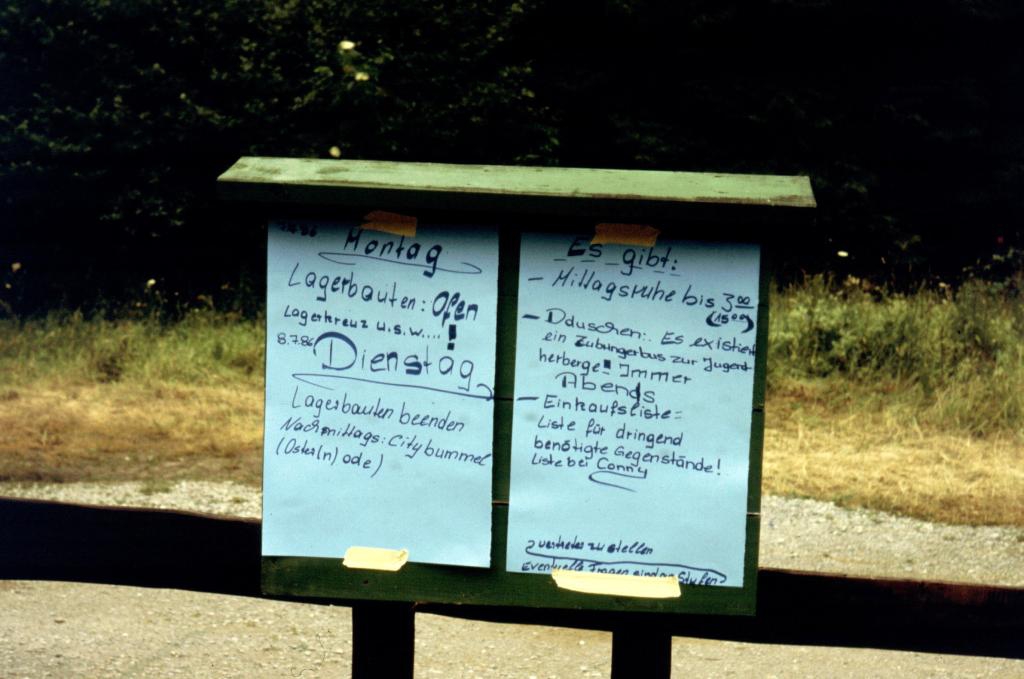 7.7.86
Montag
Lagerbauten: Ofen
Lagerkreuz u.s.w.... !
8.7.86 Dienstag
Lagerbauten beenden
Nachmittags: Citybummel
(Oster(n) ode)
Es gibt:
- Mittagsruhe bis 3 00
(15 00)
- Dduschen: Es existiert
ein Zubringerbus zur Jugend-
herberge! Immer
Abends
- Einkaufsliste:
Liste für dringend
benötigte Gegenstände!
Liste bei Conny
zu stellen
Eventuelle Fragen sind an Stufen